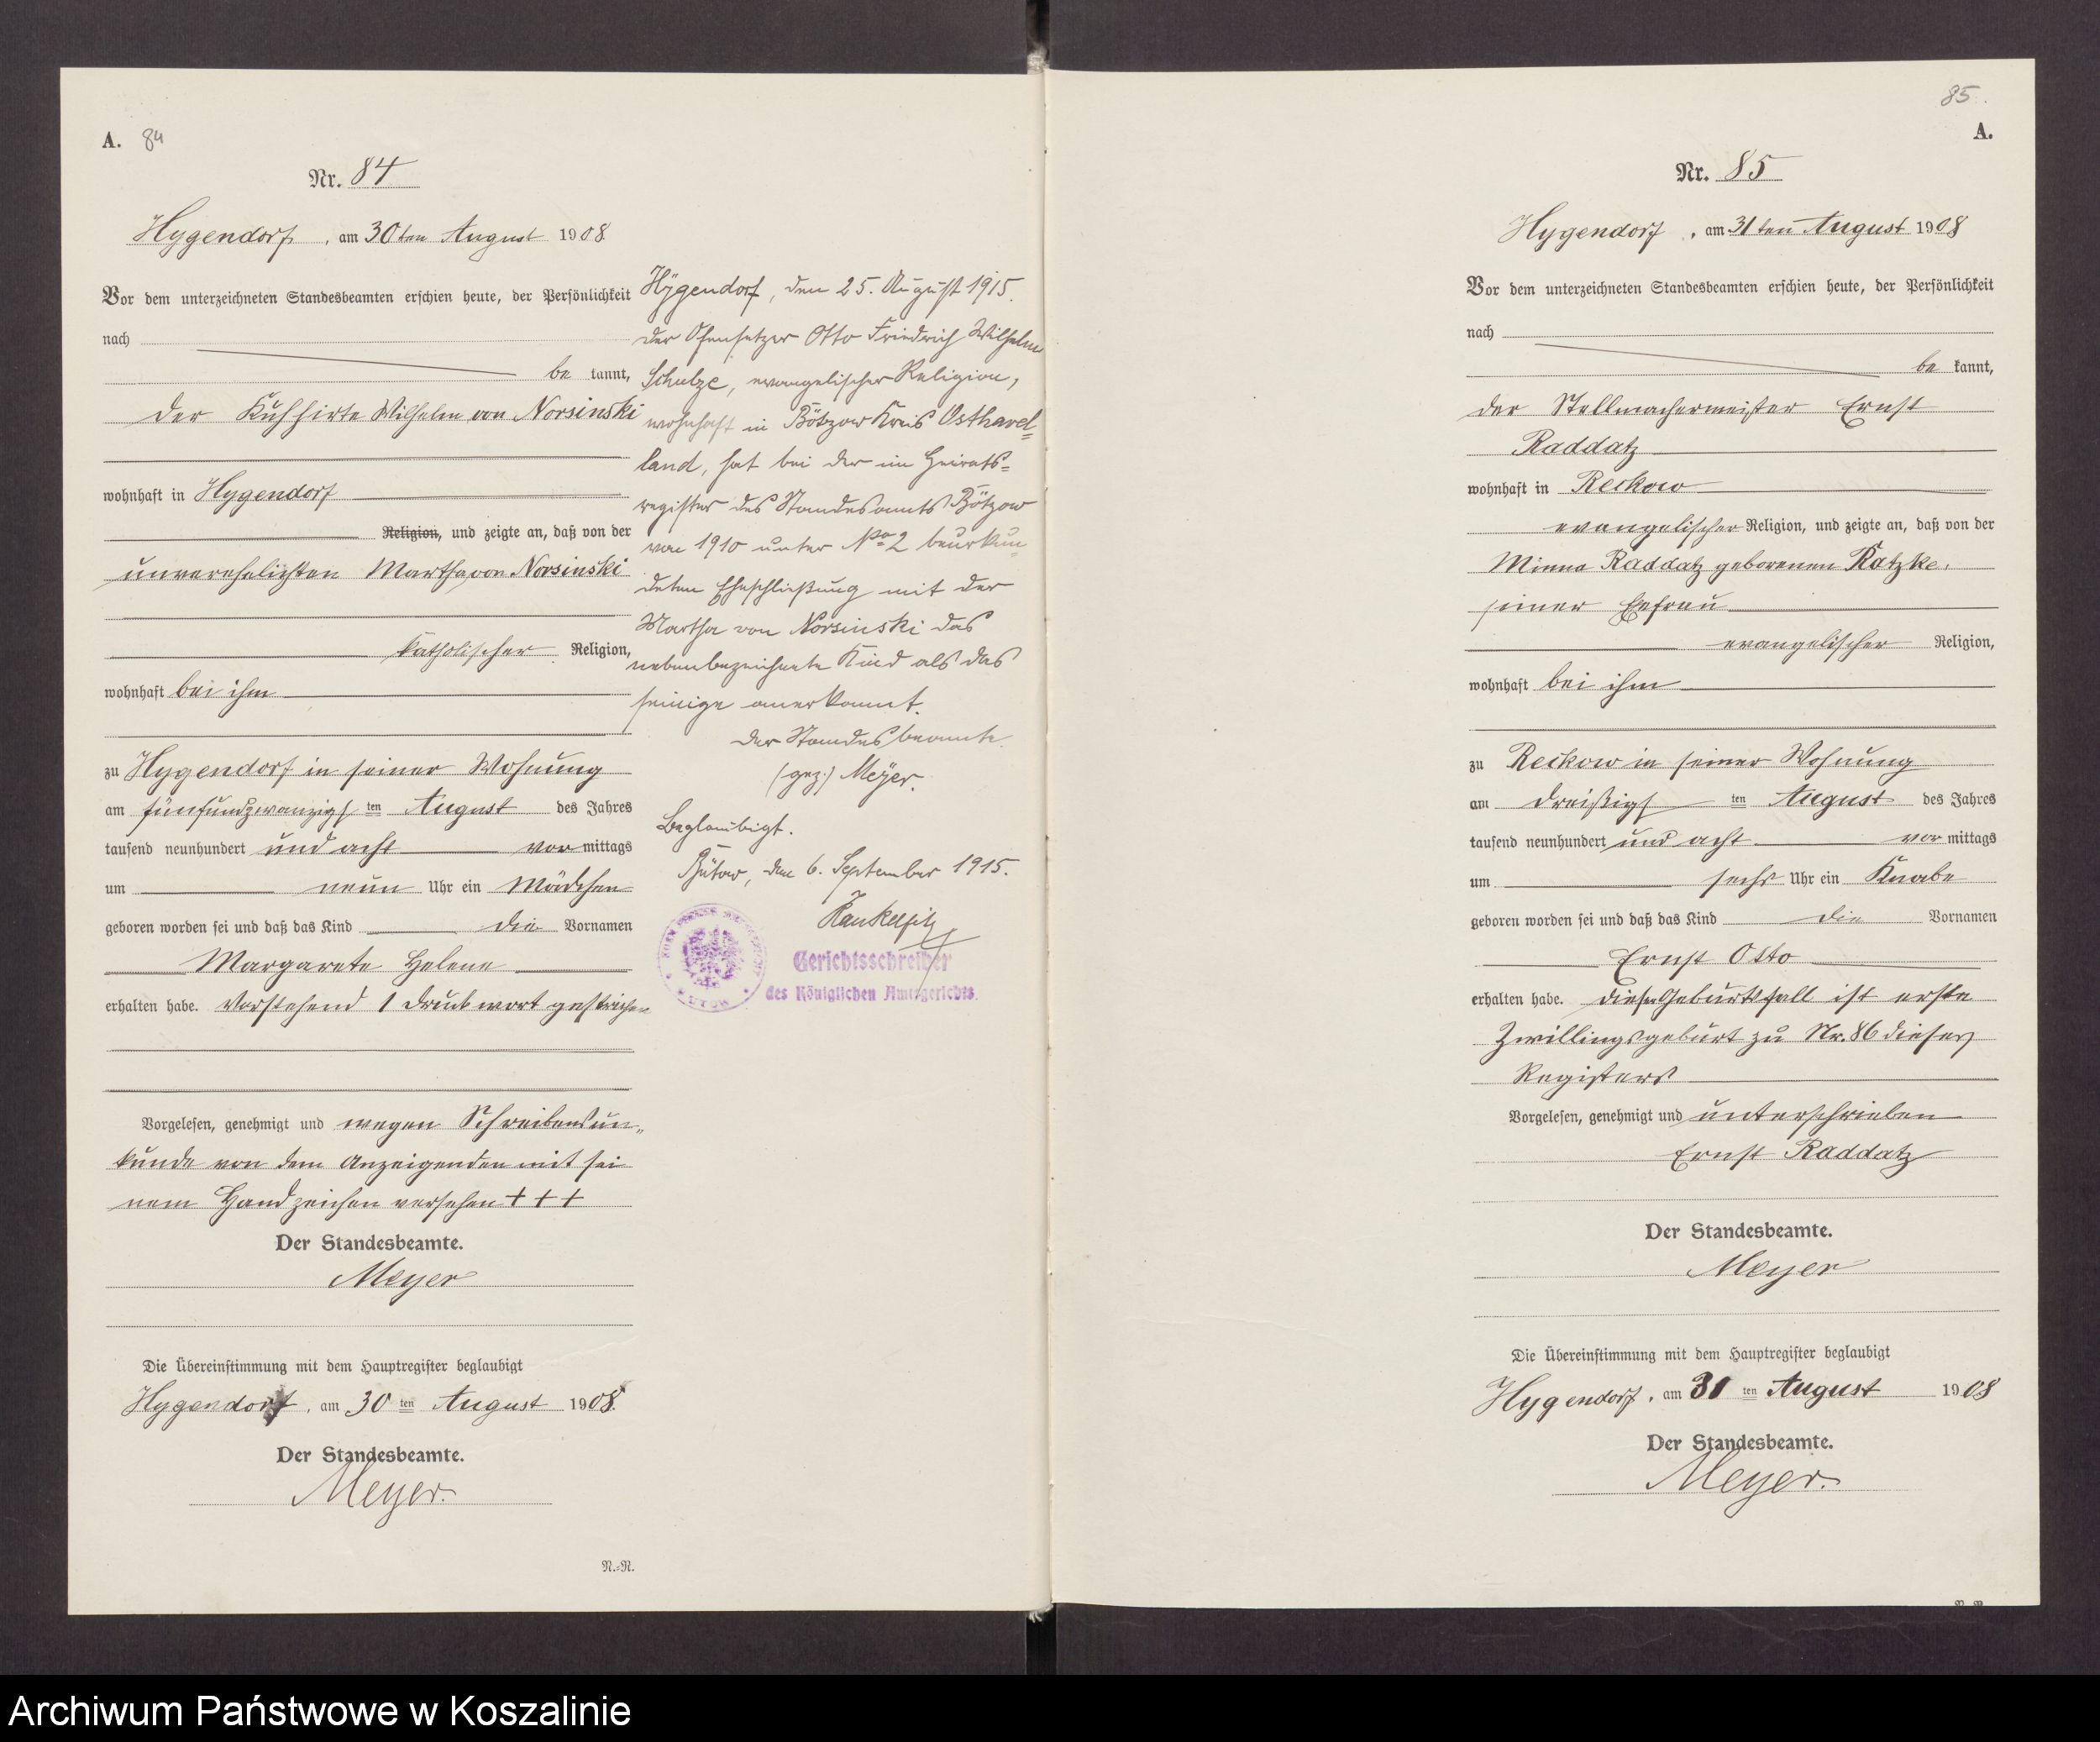 A. 84
Nr. 84
Hygendorf, am 30ten August 1908.
Vor dem unterzeichneten Standesbeamten erschien heute, der Persönlichkeit
nach
be kannt,
der Kuhhirte Wilhelm von Norsinski
wohnhaft in Hygendorf
Religion, und zeigte an, daß von der
unverehelichten Martha von Norsinski
katholischer Religion,
wohnhaft bei ihm
zu Hygendorf in seiner Wohnung
am fünfundzwanzigsten August des Jahres
tausend neunhundert und acht vormittags
um neun Uhr ein Mädchen
geboren worden sei und daß das Kind die Vornamen
Margarete Helene
erhalten habe. Vorstehend 1 Druckwort gestrichen
Vorgelesen, genehmigt und wegen Schreibensun„
kunde von dem Anzeigenden mit sei
nem Handzeichen versehen + + +
Der Standesbeamte.
Meyer
Die Übereinstimmung mit dem Hauptregister beglaubigt
Hygendorf, am 30 ten August 1908.
Der Standesbeamte.
Meyer.
N.=N.
Hÿgendorf, den 25. August 1915.
Der Ofensetzer Otto Friedrich Wilhelm
Schulze, evangelischer Religion,
wohnhaft in Bötzow Kreis Osthavel=
land, hat bei der im Heirats=
register des Standesamts Bötzow
von 1910 unter No 2 beurkun=
deten Eheschließung mit der
Martha von Norsinski das
nebenbezeichnete Kind als das
seinige anerkannt.
Der Standesbeamte.
(gez:) Meÿer.
Beglaubigt.
Bütow, den 6. September 1915.
Gerichtsschreiber
des Königlichen Amtsgerichts.
85.
A.
Nr. 85
Hygendorf, am 31ten August 1908
Vor dem unterzeichneten Standesbeamten erschien heute, der Persönlichkeit
nach
be kannt,
der Stellmachermeister Ernst
Raddatz
wohnhaft in Reckow
evangelischer Religion, und zeigte an, daß von der
Minna Raddatz geborenen Ratzke,
seiner Ehefrau
evangelischer Religion,
wohnhaft bei ihm
zu Reckow in seiner Wohnung
am dreißigsten August des Jahres
tausend neunhundert und acht vormittags
um sechs Uhr ein Knabe
geboren worden sei und daß das Kind die Vornamen
Ernst Otto
erhalten habe. Dieser Geburtsfall ist erste
Zwillingsgeburt zu Nr. 86 dieses
Registers
Vorgelesen, genehmigt und unterschrieben
Ernst Raddatz
Der Standesbeamte.
Meyer
Die Übereinstimmung mit dem Hauptregister beglaubigt
Hygendorf, am 31 ten August 1908
Der Standesbeamte.
Meyer.
Archiwum Państwowe w Koszalinie